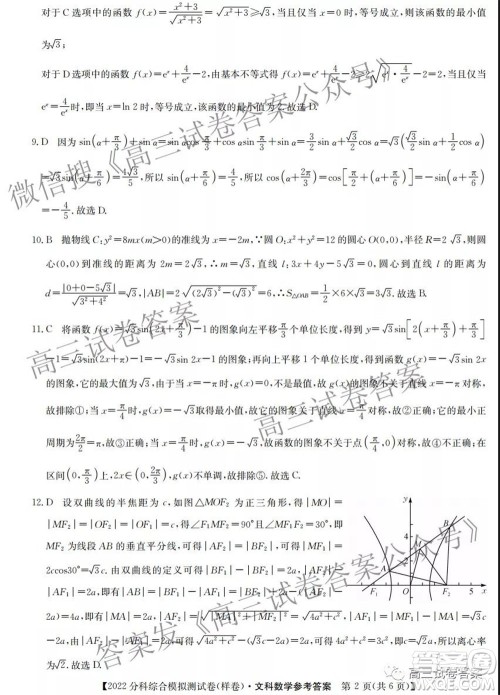 对于 C 选项中的函数 f(x)=(x²+3)/√(x²+3)=√(x²+3)≥√3,当且仅当 x=0 时,等号成立,则该函数的最小值
为√3;
对于 D 选项中的函数 f(x)=eˣ+4/eˣ-2,由基本不等式得 f(x)=eˣ+4/eˣ-2≥2√(eˣ·4/eˣ)-2=2,当且仅当
eˣ=4/eˣ 时,即当 x=ln 2 时,等号成立,该函数的最小值为 2.故选 D.
9. D 因为 sin(α+π/3)+sin α=sin αcos π/3+cos αsin π/3+sin α=3/2 sin α+√3/2 cos α=√3(√3/2 sin α+1/2 cos α)
=√3sin(α+π/6)=4√3/5,所以 sin(α+π/6)=4/5,所以 cos(α+2π/3)=cos[π/2+(α+π/6)]=-sin(α+π/6)=
-4/5.故选 D.
10. B 抛物线 C:y²=8mx(m>0)的准线为 x=-2m,∵圆 O:x²+y²=12 的圆心 O(0,0),半径 R=2√3,则圆
心(0,0)到准线的距离为 2m=2√3,∴m=√3,直线 l:3x+4y-5√3=0,∴圆心 O 到直线 l 的距离为
d=|0+0-5√3|/√(3²+4²)=√3,|AB|=2√((2√3)²-(√3)²)=6,∴S△OAB=1/2×6×√3=3√3.故选 B.
11. C 将函数 f(x)=√3sin(2x+π/3)-1 的图象向左平移π/3个单位长度,得到 y=√3sin[2(x+π/3)+π/3]
-1=√3sin(2x+π)-1=-√3sin 2x-1 的图象;再向上平移 1 个单位长度,得到函数 g(x)=-√3sin 2x
的图象,它的最大值为√3,由于当 x=-π 时,g(x)=0,不是最值,故 g(x)的图象不关于直线 x=-π 对称,
故排除①;当 x=π/4时,g(x)=-√3取得最小值,故它的图象关于直线 x=π/4对称,故②正确;它的最小正
周期为2π/2=π,故③正确;当 x=π/4时,g(x)=-√3,故函数的图象不关于点(π/4,0)对称,故④不正确;在
区间(0,π/3)上,2x∈(0,2π/3),g(x)不单调,故排除⑤.故选 C.
12. D 设双曲线的半焦距为 c,如图△MOF₂ 为正三角形,得|MO|=
|MF₂|=|OF₂|=|OF₁|=c,得∠F₁MF₂=90°且∠MF₁F₂=30°,即
MF₂ 为线段 AB 的垂直平分线,可得|AF₂|=|BF₂|,可得|MF₁|=
2ccos30°=√3c.由双曲线的定义可得|BF₁|-|BF₂|=2a,|AF₂|
-|AF₁|=2a,即有|MA|=2a,|AF₂|=√(4a²+c²),|AF₁|=|MF₁|-|MA|=√3c
-2a,由|AF₂|-|AF₁|=2a,可得√(4a²+c²)-(√3c-2a)=2a,可得√(4a²+c²)=√3c,即 c=√2a,所以离心率
为√2.故选 D.
y
M
B
A
F₁
O
F₂
x
【2022 分科综合模拟测试卷(样卷)·文科数学参考答案 第 2 页(共 6 页)】
微信搜《高三试卷答案公众号》
高三试卷答案
高三试卷答案
答案发《高三试卷答案公众号》
高三试卷答案